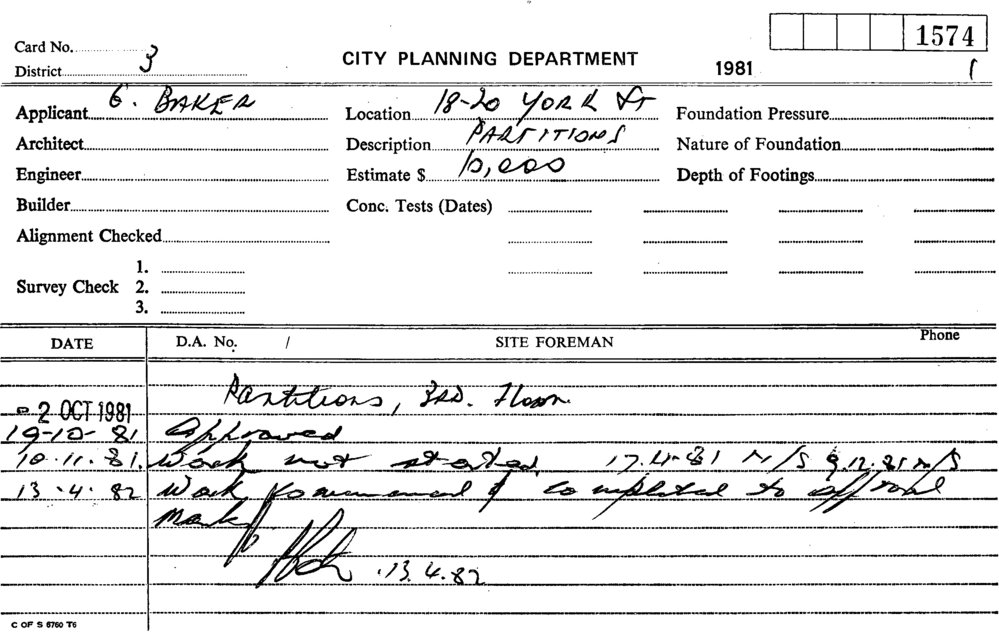 1574
Card No. 3
District
CITY PLANNING DEPARTMENT
1981
1
Applicant G. BAKER
Location 18-20 YORK ST
Foundation Pressure
Architect
Description PARTITIONS
Nature of Foundation
Engineer
Estimate $ 10,000
Depth of Footings
Builder
Conc. Tests (Dates)
Alignment Checked
1.
Survey Check 2.
3.
DATE D.A. No. / SITE FOREMAN Phone
Partitions, 3RD. Floor.
2 OCT 1981
19-10-81 Approved
10.11.81. Work not started. 17.11.81 N/S 9.12.81 N/S
13.4.82 Work commenced & completed to
13.4.82
C OF S 6760 T6